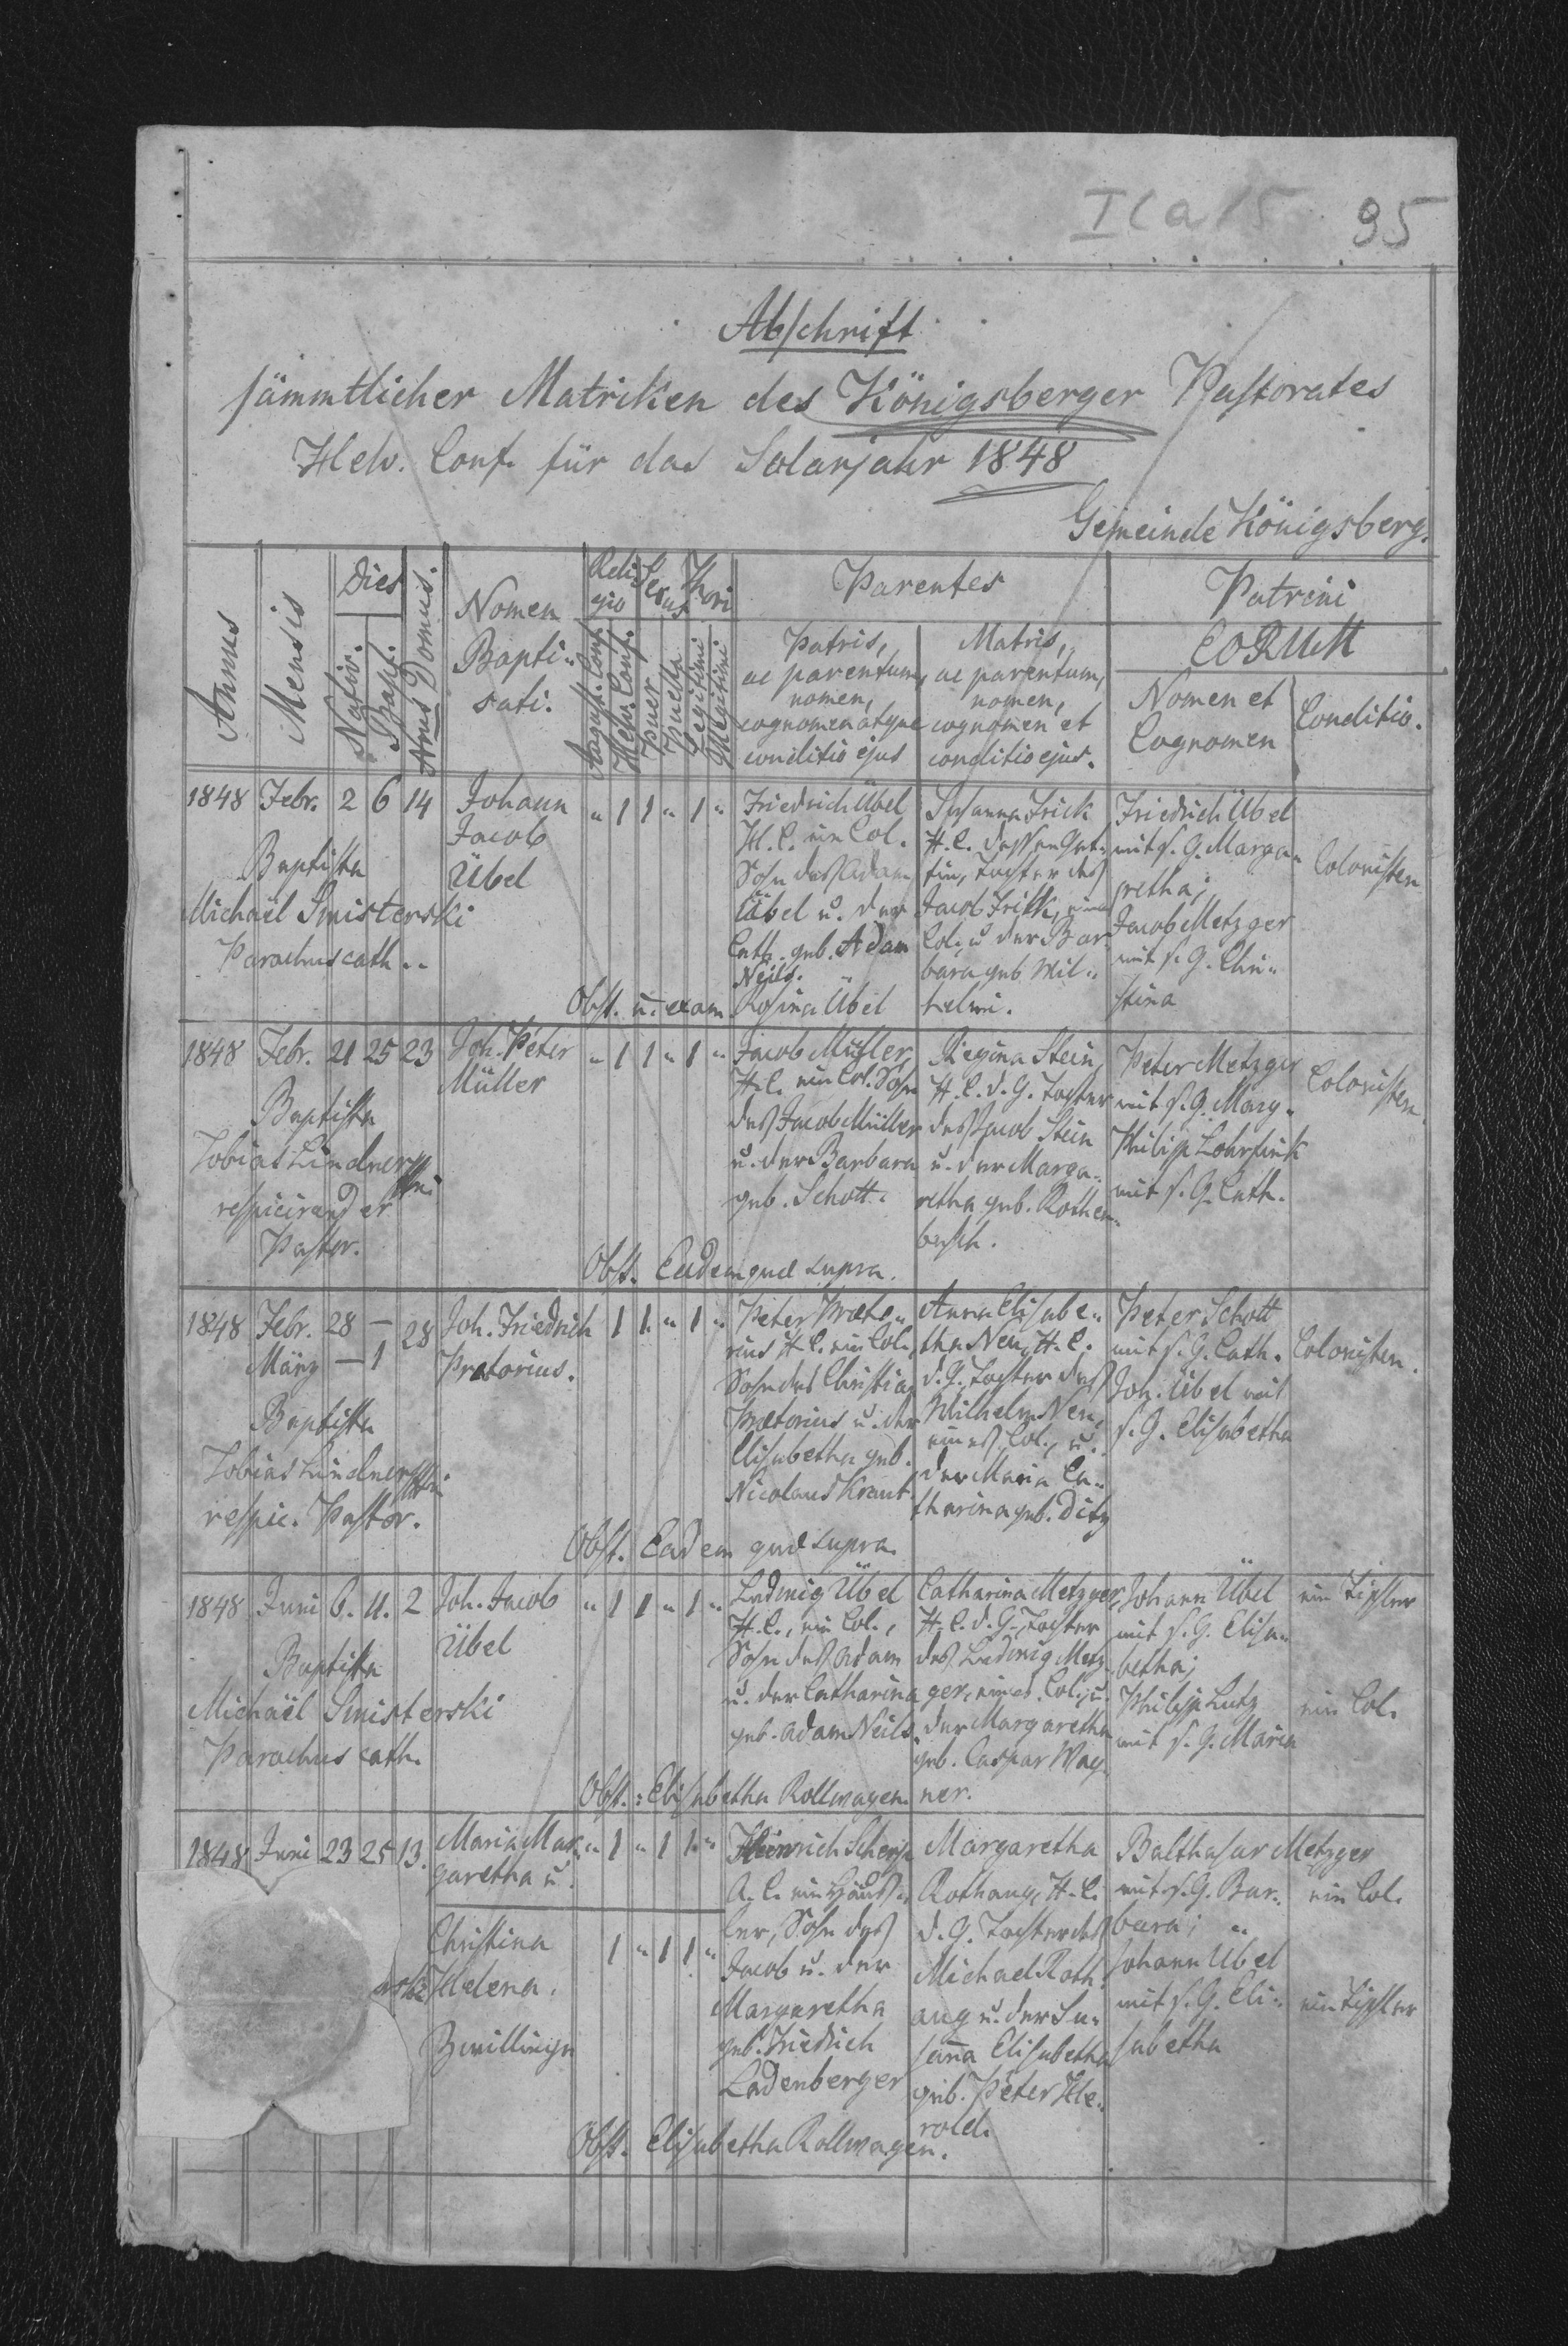 I(a15 95
Abschrift
sämmtlicher Matriken des Königsberger Pastorates
Helv. Conf. für das Solarjahr 1848
Gemeinde Königsberg.
Annus
Mensis
Dies
Nativ.
Bapt.
Nrus Domus.
Nomen
Bapti-
sati.
Reli-
gio
Sexus
Thori
August. Conf.
Helv. Conf.
Puer
Puella
Legitimi
Illegitimi
Parentes
Patris,
ac parentum
nomen,
cognomen atque
conditio ejus
Matris,
ac parentum,
nomen,
cognomen et
conditio ejus.
Patrini
CORUM
Nomen et
Cognomen
Conditio.
1848 Febr. 2 6 14
Baptista
Michaël Smisterski
Parochus cath.
Johann
Jacob
Übel
" 1 1 " 1 "
Friedrich Übel
H. C. ein Col.
Sohn deß Adam
Übel u. der
Cath. geb. Adam
Neils.
Obst. u. exam. Rosina Übel
Susanna Frick
H. C. dessen Gat-
tin, Tochter deß
Jacob Frikk, eines
Col. u. der Bar-
bara geb. Wil-
helmi.
Friedrich Übel
mit s. G. Marga-
retha;
Jacob Metzger
mit s. G. Chri-
stina
Colonisten
1848 Febr. 21 25 23
Baptista
Tobias Lindner
respicirender
Pastor.
Joh. Peter
Müller
" 1 1 " 1 "
Jacob Müller,
H. C. ein Col. Sohn
deß Jacob Müller
u. der Barbara
geb. Schott.
Regina Stein,
H. C. d. G. Tochter
deß Jacob Stein
u. der Marga-
retha geb. Rothen-
busch.
Obst. Eadem quae supra.
Peter Metzger
mit s. G. Marg.
Philipp Lohrfink
mit s. G. Cath.
Colonisten
1848 Febr. 28 — 28
März — 1
Baptista
Tobias Lindner
respic. Pastor.
Joh. Friedrich
Pretorius.
1 1 " 1 "
Peter Præto-
rius H. C. ein Col.,
Sohn des Christian
Prætorius u. der
Elisabetha geb.
Nicolaus Kraut.
Anna Elisabe-
tha Neu, H. C.
d. G. Tochter deß
Wilhelm Neu,
eines Col., u.
der Maria Ca-
tharina geb. Ditz
Obst. Eadem quae supra
Peter Schott
mit s. G. Cath.
Joh. Übel mit
s. G. Elisabetha
Colonisten.
1848 Juni 6. 11. 2
Baptista
Michaël Smisterski
Parochus cath.
Joh. Jacob
Übel
" 1 1 " 1 "
Ludwig Übel
H. C., ein Col.,
Sohn deß Adam
u. der Catharina
geb. Adam Neils.
Catharina Metzger,
H. C. d. G. Tochter
deß Ludwig Metz-
ger, eines Col. u.
der Margaretha
geb. Caspar Wag-
ner.
Obst.: Elisabetha Rollwagen.
Johann Übel
mit s. G. Elisa-
betha;
Philipp Lutz
mit s. G. Maria
ein Tischler
ein Col.
1848 Juni 23 25 13.
Maria Mar-
garetha u.
Christina
Helena.
Zwillinge
" 1 " 1 1 "
1 " 1 1 "
Heinrich Scherp
A. C. ein Häus-
ler, Sohn deß
Jacob u. der
Margaretha
geb. Friedrich
Ladenberger
Margaretha
Rothaug, H. C.
d. G. Tochter deß
Michael Roth-
aug u. der Su-
sanna Elisabetha
geb. Peter He-
rold.
Obst. Elisabetha Rollwagen.
Balthasar Metzger
mit s. G. Bar-
bara;
Johann Übel
mit s. G. Eli-
sabetha
ein Col.
ein Tischler